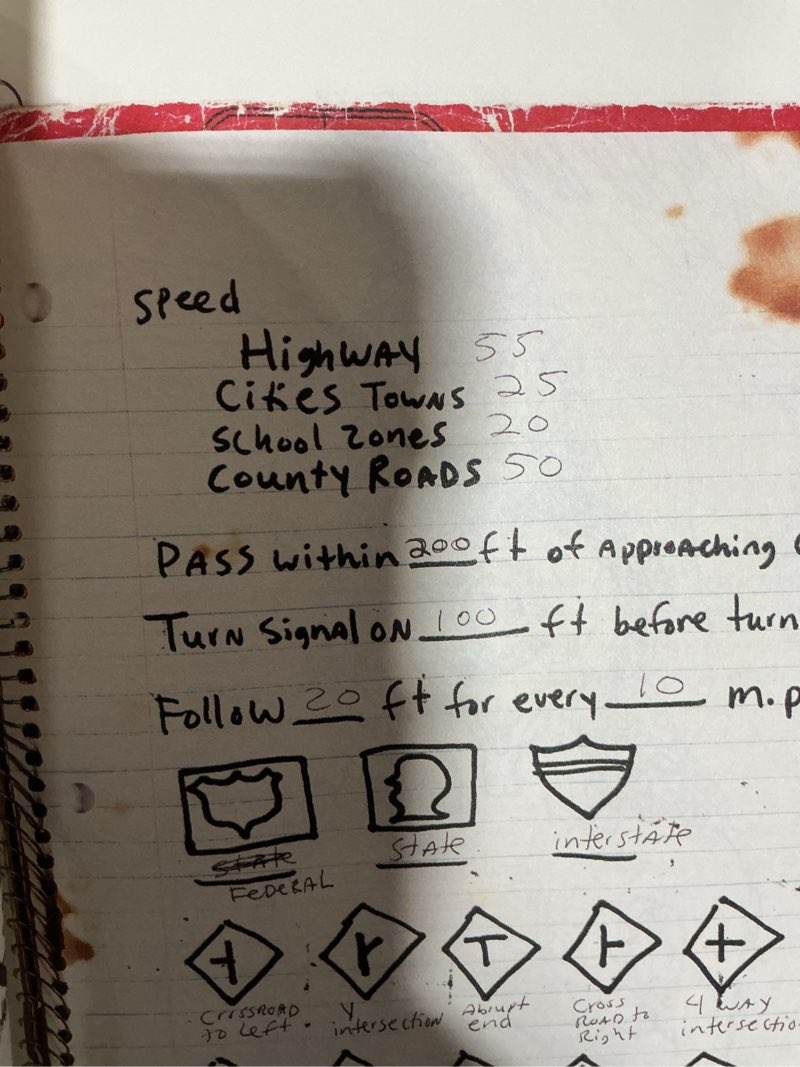 Speed
Highway 55
Cities Towns 25
School Zones 20
County Roads 50
Pass within 200 ft of Approaching
Turn Signal on 100 ft before turn
Follow 20 ft for every 10 m.p
State State interstate
Federal
Crossroad to Left.
Y intersection
Abrupt end
Cross Road to Right
4 way intersectio